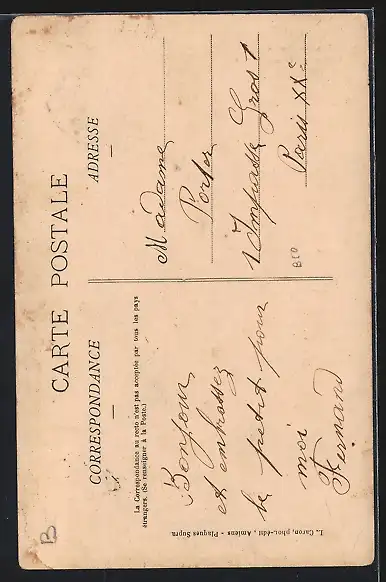 CARTE POSTALE
CORRESPONDANCE
ADRESSE
La Correspondance au recto n'est pas acceptée par tous les pays
étrangers. (Se renseigner à la Poste.)
Bonjour
et embrassez
le petit pour
moi
Fernand
Madame
Porter
1 Impasse Gros 1
Paris XXe
L. Caron, phot.-édit., Amiens - Plaques Supra
B